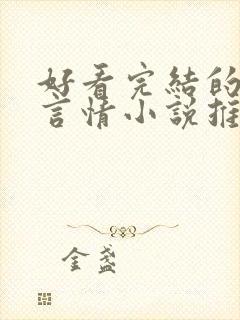 好看完結的
言情小說推
金盞